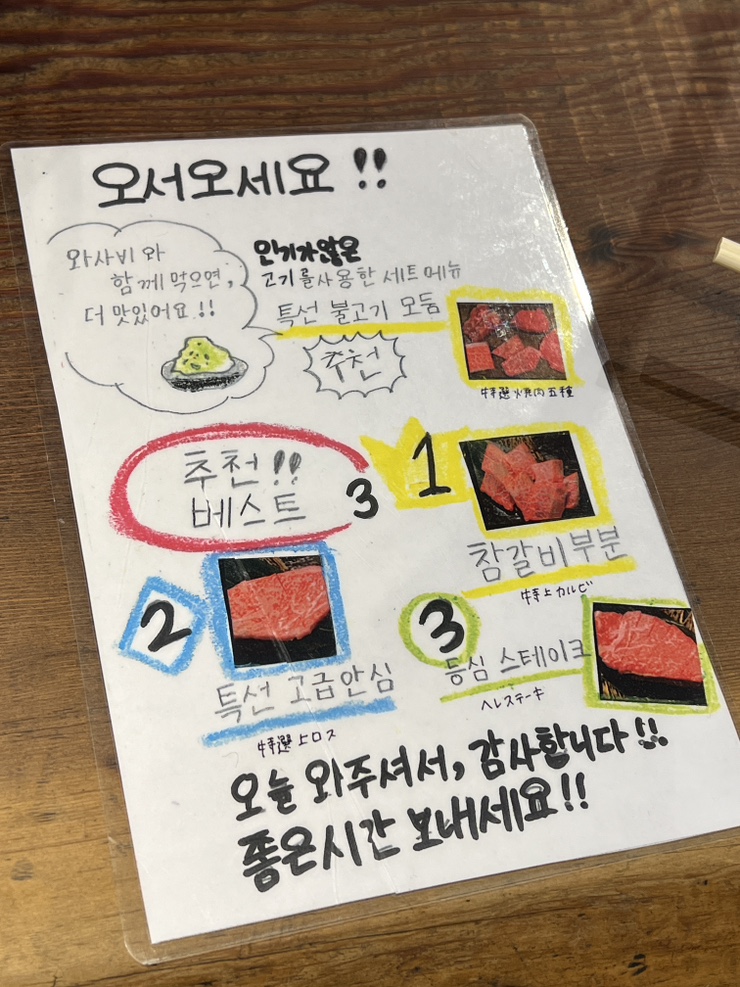 오서오세요 !!
와사비와
함께 먹으면,
더 맛있어요 !!
인기가많은
고기를사용한 세트메뉴
특선 불고기 모듬
추천
特選 焼肉五種
추천!!
베스트 3
1
참갈비부분
特上カルビ
2
특선 고급안심
特選上ロス
3
등심 스테이크
ヘレステーキ
오늘 와주셔서, 감사합니다 !!
좋은시간 보내세요!!